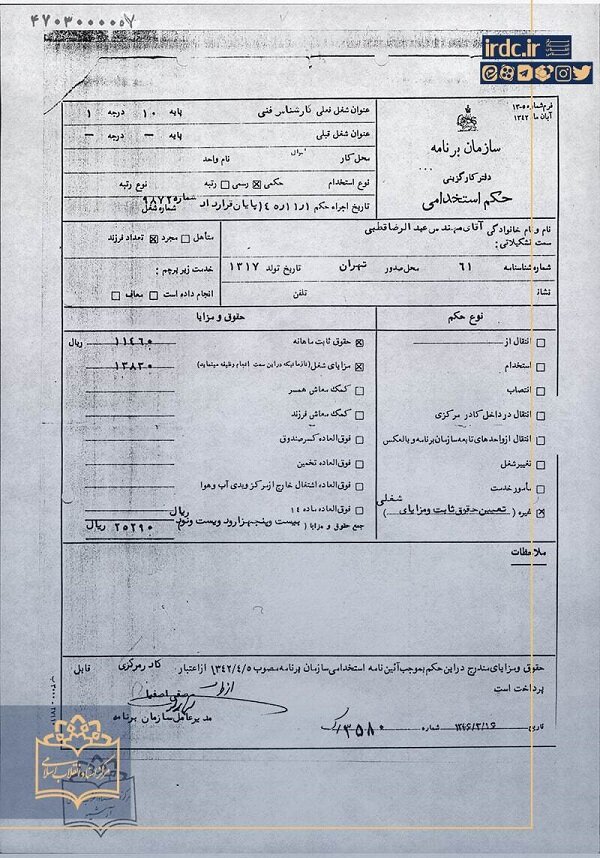 ۴۷۰۳۰۰۰۰۰۷
irdc.ir
فرم شماره ۵-۱۳
آبان ماه ۱۳۴۲
سازمان برنامه
دفتر کارگزینی
حکم استخدامی
عنوان شغل فعلی کارشناس فنی پایه ۱۰ درجه ۱
عنوان شغل قبلی پایه — درجه —
محل کار نام واحد
نوع استخدام حکمی رسمی رتبه نوع رتبه
تاریخ اجراء حکم ۴۵/۱/۱ (پایان قرارداد شماره ۹۸۷۲)
شماره شغل
نام و نام خانوادگی آقای مهندس عبدالرضا قطبی
سمت تشکیلاتی:
شماره شناسنامه ۶۱ محل صدور تهران تاریخ تولد ۱۳۱۷
نشانی تلفن
متأهل مجرد تعداد فرزند
خدمت زیر پرچم:
انجام داده است معاف
نوع حکم
انتقال از
استخدام
انتصاب
انتقال در داخل کادر مرکزی
انتقال از واحدهای تابعه سازمان برنامه و بالعکس
تغییر شغل
مأمور خدمت
غیره (تعیین حقوق ثابت و مزایای شغلی)
حقوق و مزایا
حقوق ثابت ماهانه ۱۱۴۶۰ ریال
مزایای شغل (تا زمانیکه در این سمت انجام وظیفه مینماید) ۱۳۸۳۰
کمک معاش همسر
کمک معاش فرزند
فوق‌العاده کسر صندوق
فوق‌العاده تخمین
فوق‌العاده اشتغال خارج از مرکز و بدی آب و هوا
فوق‌العاده ماده ۱۴
جمع حقوق و مزایا (بیست و پنجهزار و دویست و نود ریال ۲۵۲۹۰ ریال
ملاحظات
حقوق و مزایای مندرج در این حکم بموجب آئین نامه استخدامی سازمان برنامه مصوب ۱۳۴۲/۴/۵ از اعتبار کادر مرکزی قابل
پرداخت است
از طرف
صفی اصفیاء
مدیر عامل سازمان برنامه
تاریخ ۱۳۴۵/۳/۱۶ شماره ۳۵۸۰/
مرکز اسناد انقلاب اسلامی